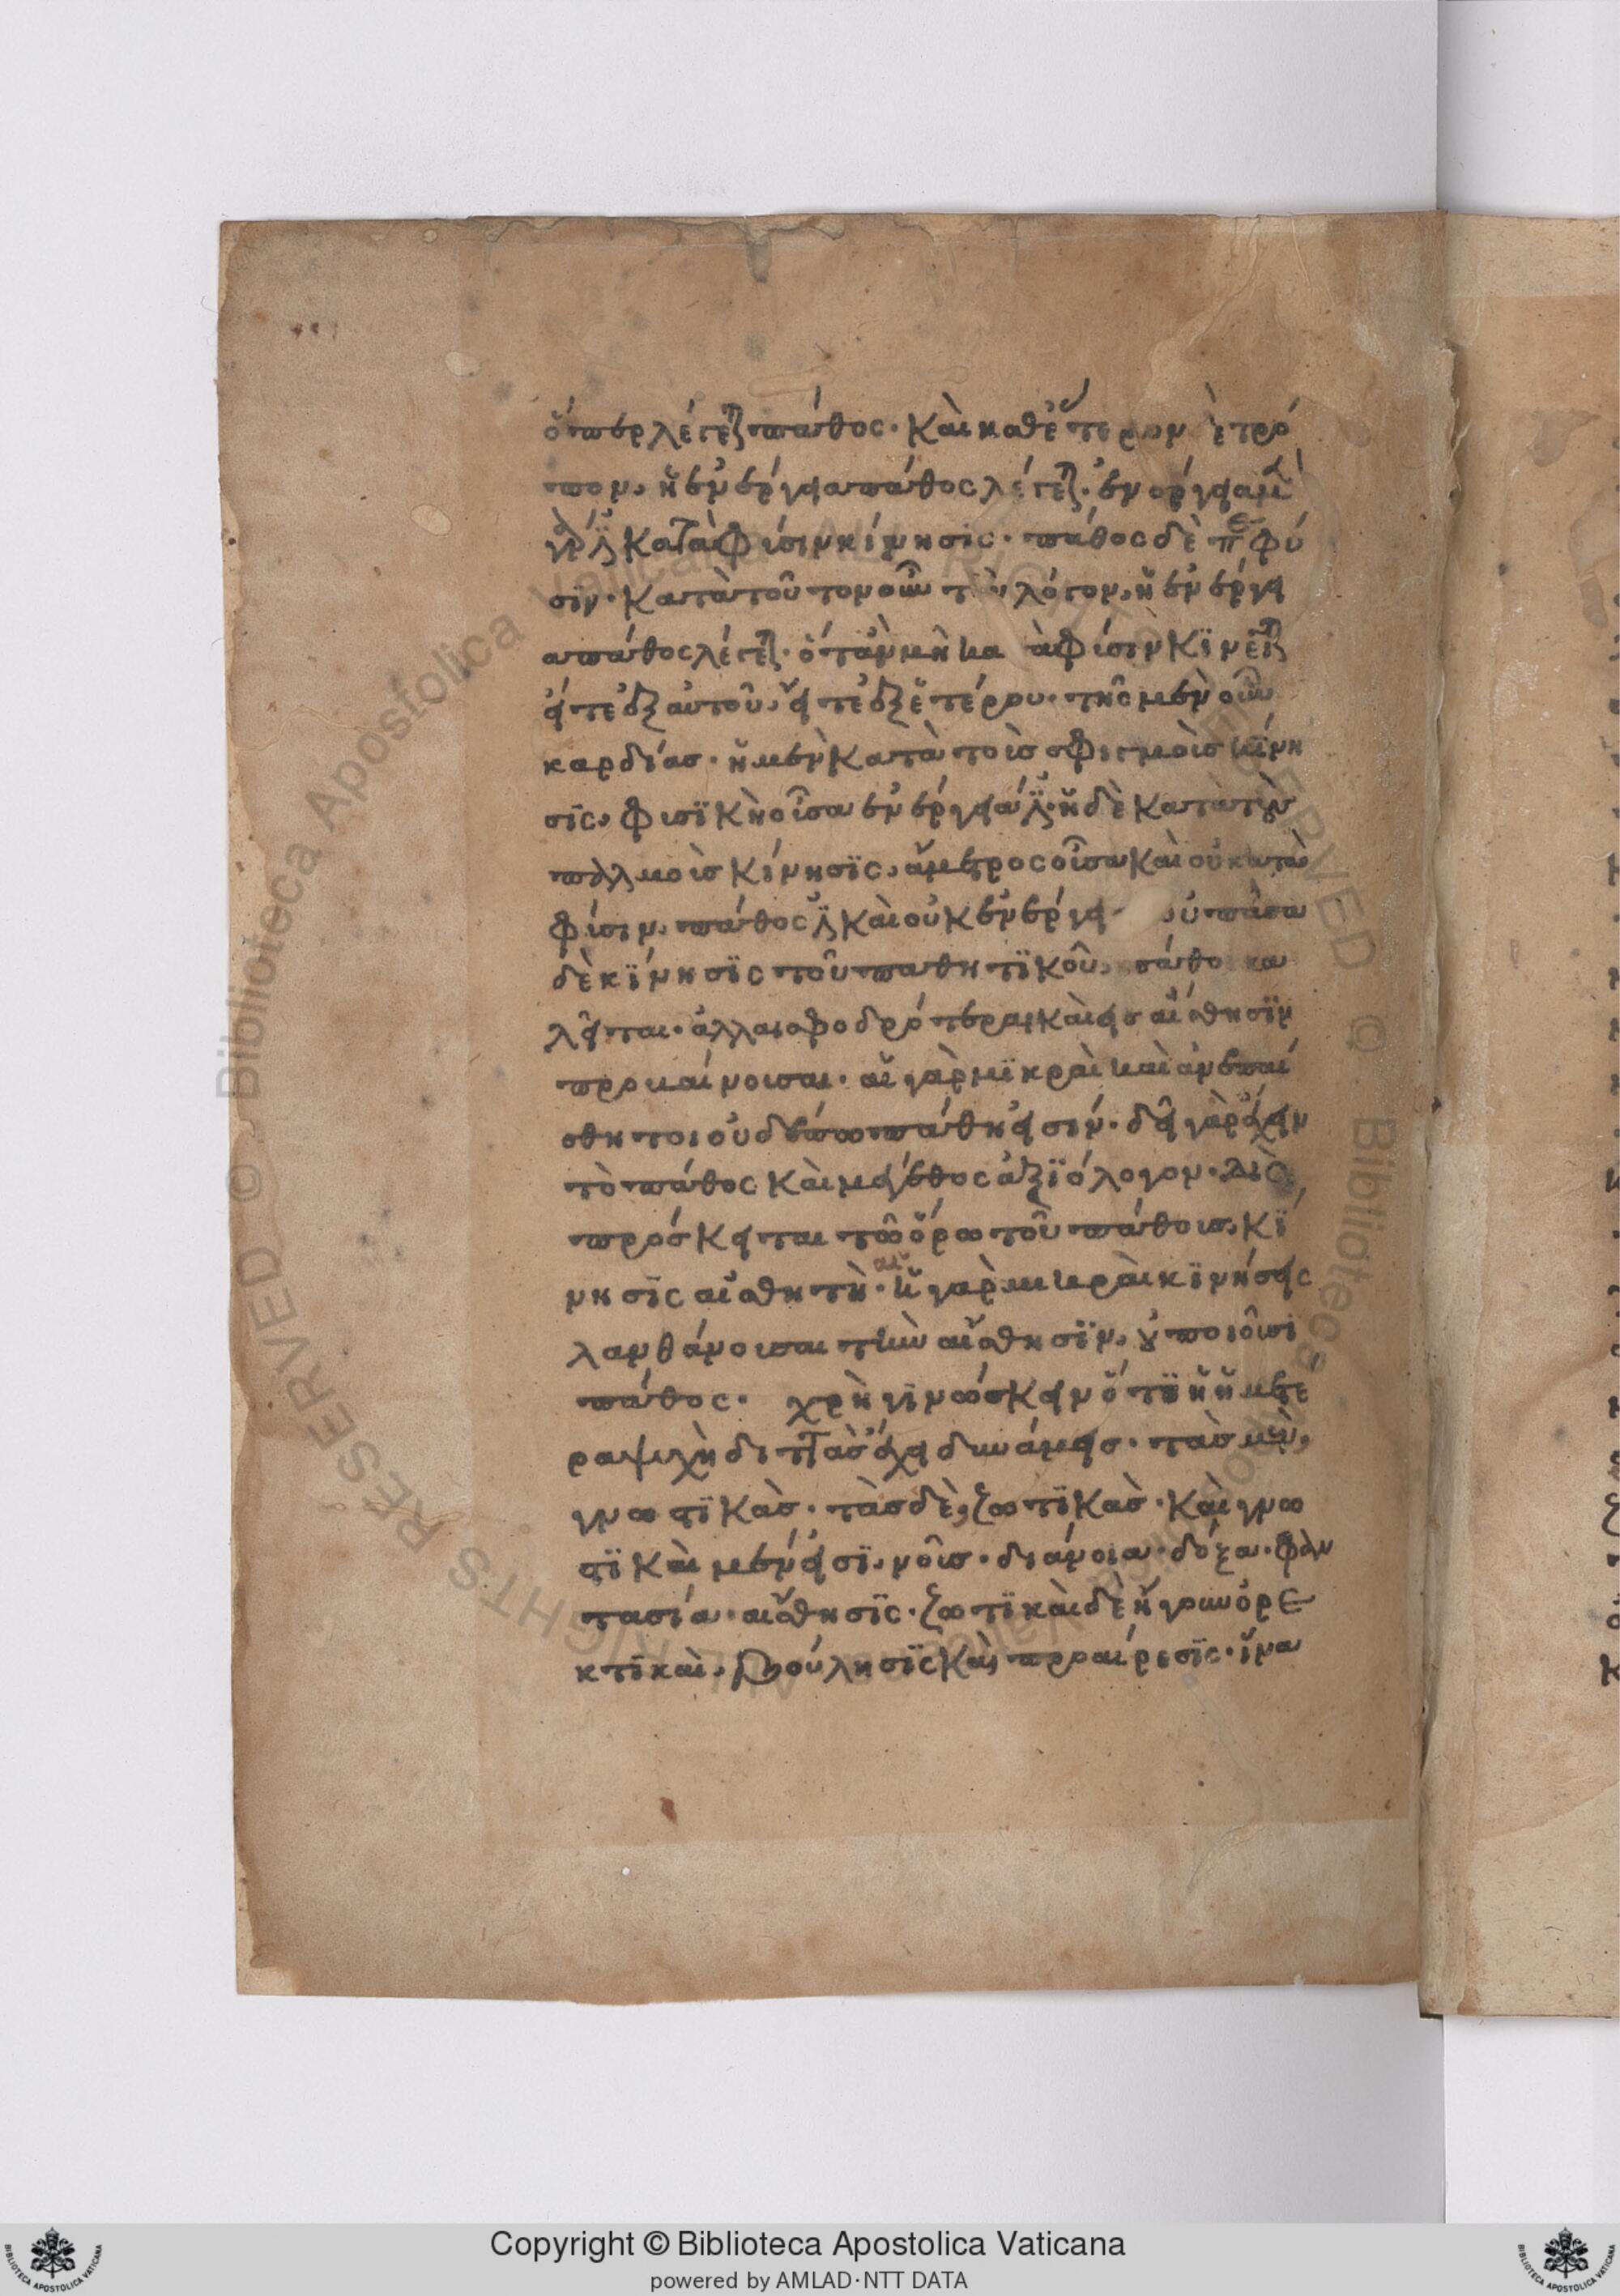 ὅπερ λέγεται πάθος. καὶ καθ' ἕτερον δὲ τρό
πον, ἡ ἐνέργεια πάθος λέγεται. ἐνέργεια μὲν
γάρ ἐστι κατὰ φύσιν κίνησις. πάθος δὲ παρὰ φύ
σϊν. κατὰ τοῦτον οὖν τὸν λόγον, ἡ ἐνέργει
α πάθος λέγεται. ὅταν μὴ κατὰ φύσιν κϊνεῖται
εἴτε ἐξ αὑτοῦ, εἴτε ἐξ ἑτέρου. τῆς μὲν οὖν
καρδίας. ἡ μὲν κατὰ τοὺς σφυγμοὺς κίνη
σϊς, φυσϊκὴ οὖσα ἐνέργειά ἐστιν. ἡ δὲ κατὰ τοὺς
παλμοὺς κίνησϊς, ἄμετρος οὖσα καὶ οὐ κατὰ
φύσιν, πάθος ἐστὶ καὶ οὐκ ἐνέργεια οὐ πᾶσα
δὲ κΐνησϊς τοῦ παθητϊκοῦ, πάθος κα
λεῖται. ἀλλ' αι σφοδρότεραι καὶ εις αἴσθησϊν
προκαίνουσαι. αἱ γὰρ μϊκραὶ καὶ ἀνεπαί
σθητοι οὐδέπω πάθη εἰσίν. δεῖ γὰρ ἔχειν
τὸ πάθος καὶ μέγεθος ἀξϊόλογον. διὸ
πρόσκειται τῶ ὅρω τοῦ πάθους, κΐ
νησϊς αἰσθητὴ. αἱ γὰρ μικραὶ κϊνήσεις
λανθάνουσαι τὴν αἴσθησϊν, οὐ ποιοῦσι
πάθος. χρὴ γϊνώσκειν ὅτϊ ἡ ἡμετέ
ρα ψυχὴ διττὰς ἔχει δυνάμεις. τὰς μὲν,
γνωστϊκὰς. τὰς δὲ, ζωτϊκὰς. καὶ γνω
στϊκαὶ μέν εἰσϊ, νοῦς. διάνοια. δόξα. φαν
τασία. αἴσθησϊς. ζωτϊκαὶ δὲ ἤγουν ὀρε
κτϊκαὶ, βούλησϊς καὶ προαίρεσϊς. ἵνα
Copyright © Biblioteca Apostolica Vaticana
powered by AMLAD·NTT DATA